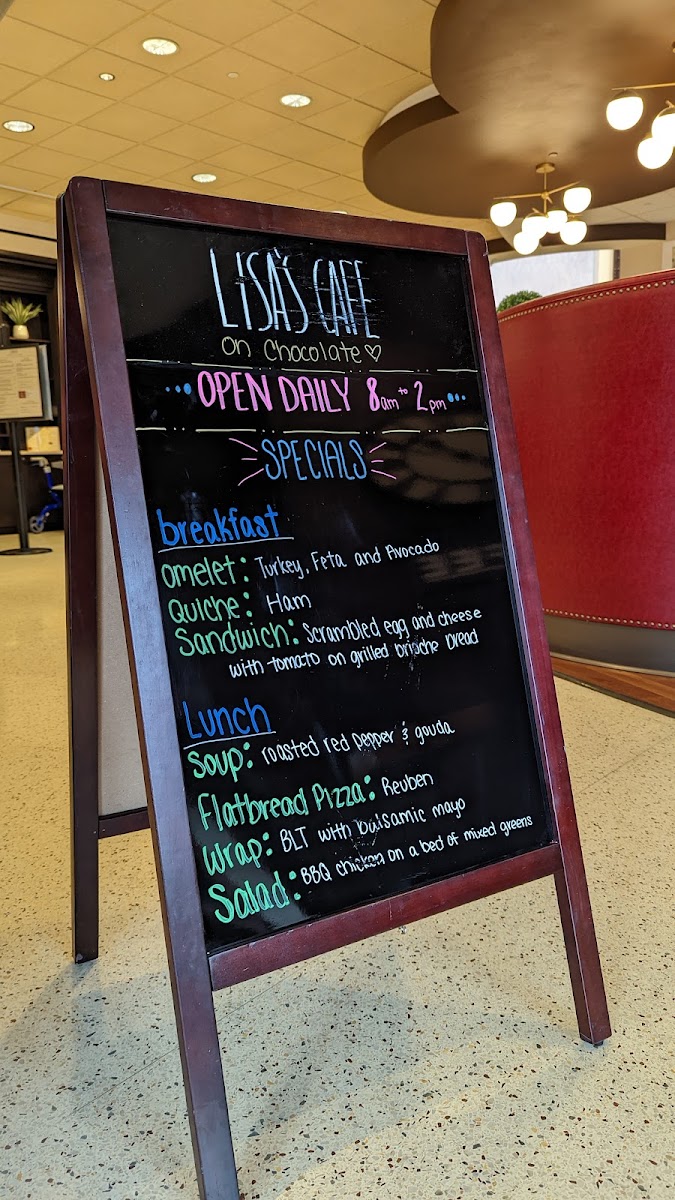 LISA'S CAFE
on Chocolate
OPEN DAILY 8am to 2pm
SPECIALS
breakfast
omelet: Turkey, Feta and Avocado
Quiche: Ham
Sandwich: Scrambled egg and cheese
with tomato on grilled brioche bread
Lunch
Soup: roasted red pepper & gouda
Flatbread Pizza: Reuben
Wrap: BLT with balsamic mayo
Salad: BBQ chicken on a bed of mixed greens